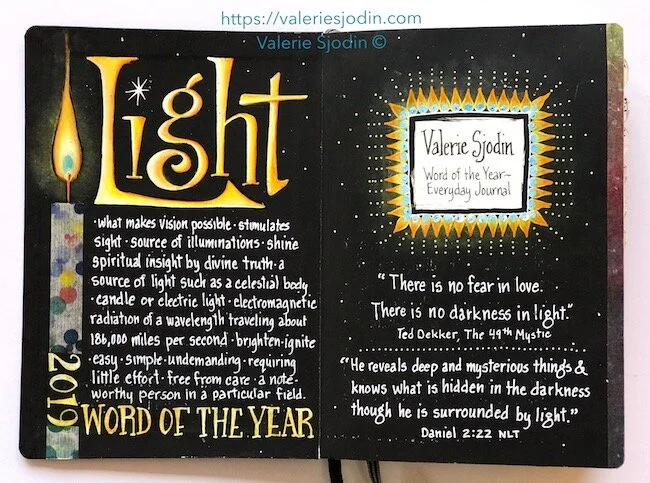 https://valeriesjodin.com
Valerie Sjodin ©
Light
·what makes vision possible·stimulates
sight·source of illuminations·shine
spiritual insight by divine truth·a
source of light such as a celestial body
·candle or electric light·electromagnetic
radiation of a wavelength traveling about
186,000 miles per second·brighten·ignite
·easy·simple·undemanding·requiring
little effort·free from care·a note-
worthy person in a particular field.
2019
WORD OF THE YEAR
Valerie Sjodin
Word of the Year~
Everyday Journal
"There is no fear in love.
There is no darkness in light."
Ted Dekker, The 49th Mystic
"He reveals deep and mysterious things &
knows what is hidden in the darkness
though he is surrounded by light."
Daniel 2:22 NLT